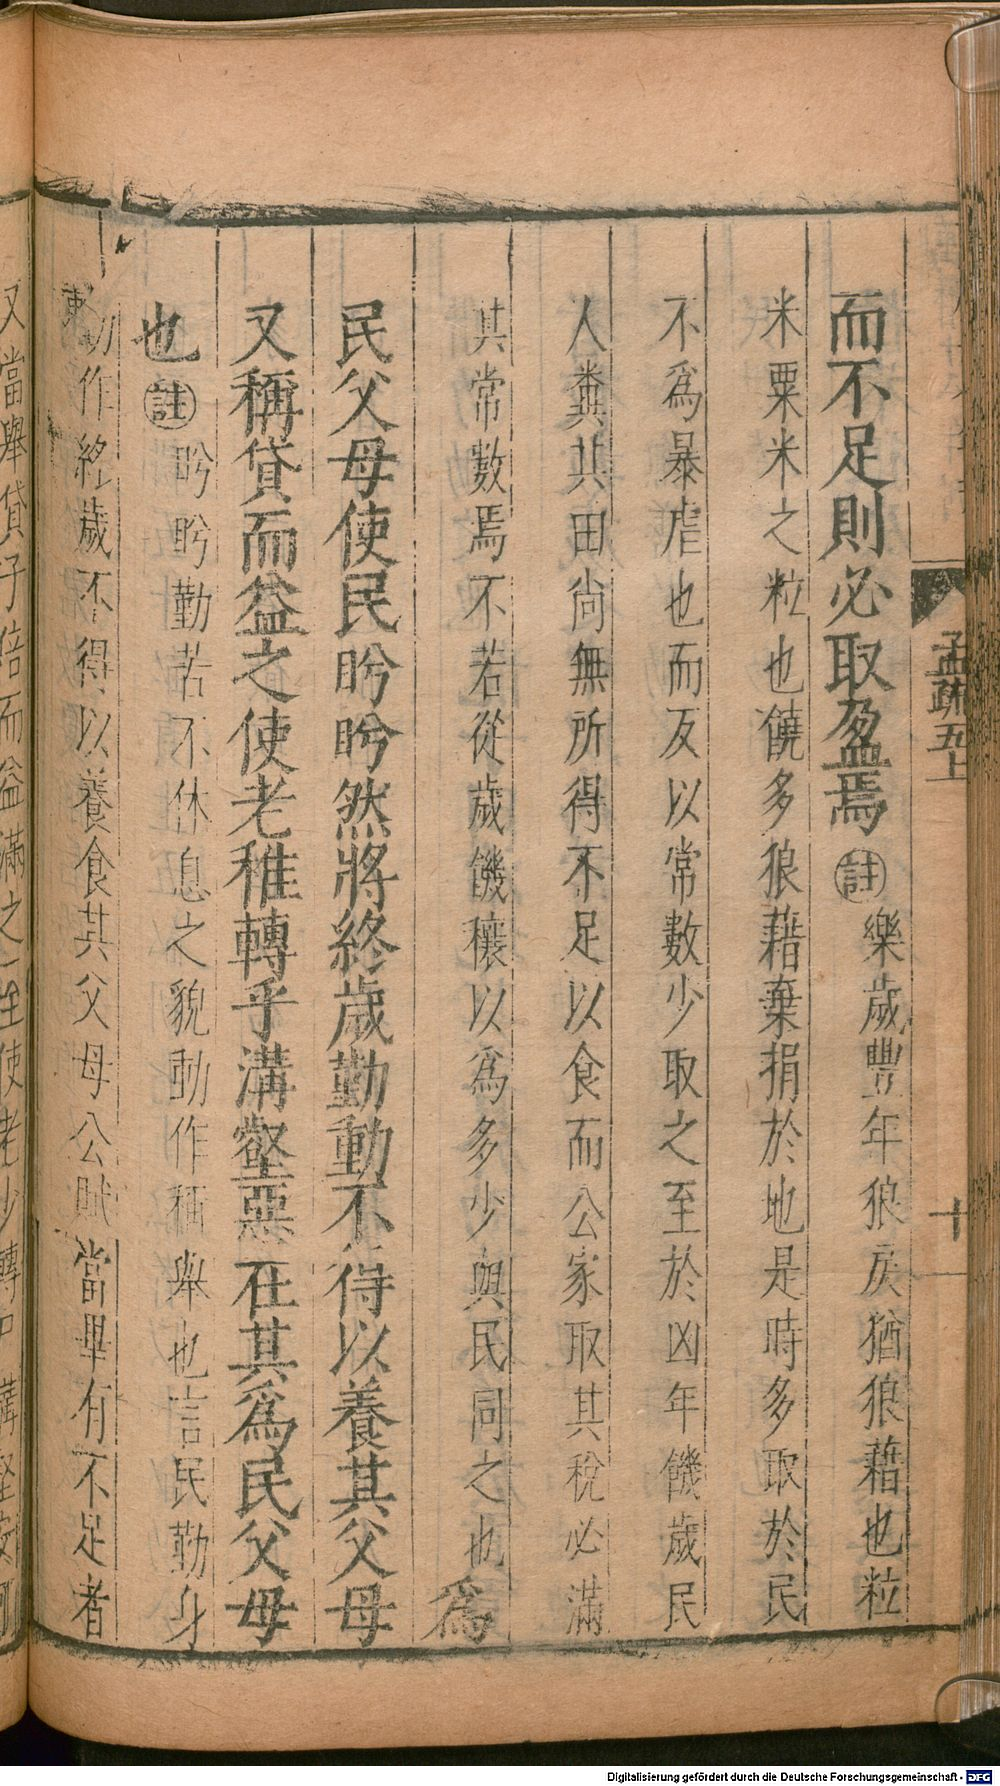 孟疏五上
十
而不足則必取盈焉註樂歲豐年狼戾猶狼藉也粒
米粟米之粒也饒多狼藉棄捐於地是時多取於民
不爲暴虐也而反以常數少取之至於凶年饑歲民
人糞其田尚無所得不足以食而公家取其稅必滿
其常數焉不若從歲饑穰以爲多少與民同之也爲
民父母使民盻盻然將終歲勤動不得以養其父母
又稱貸而益之使老稚轉乎溝壑惡在其爲民父母
也註盻盻勤苦不休息之貌動作稱舉也言民勤身
動作終歲不得以養食其父母公賦當畢有不足者
又當舉貸子倍而益滿之至使老少轉
Digitalisierung gefördert durch die Deutsche Forschungsgemeinschaft - DFG